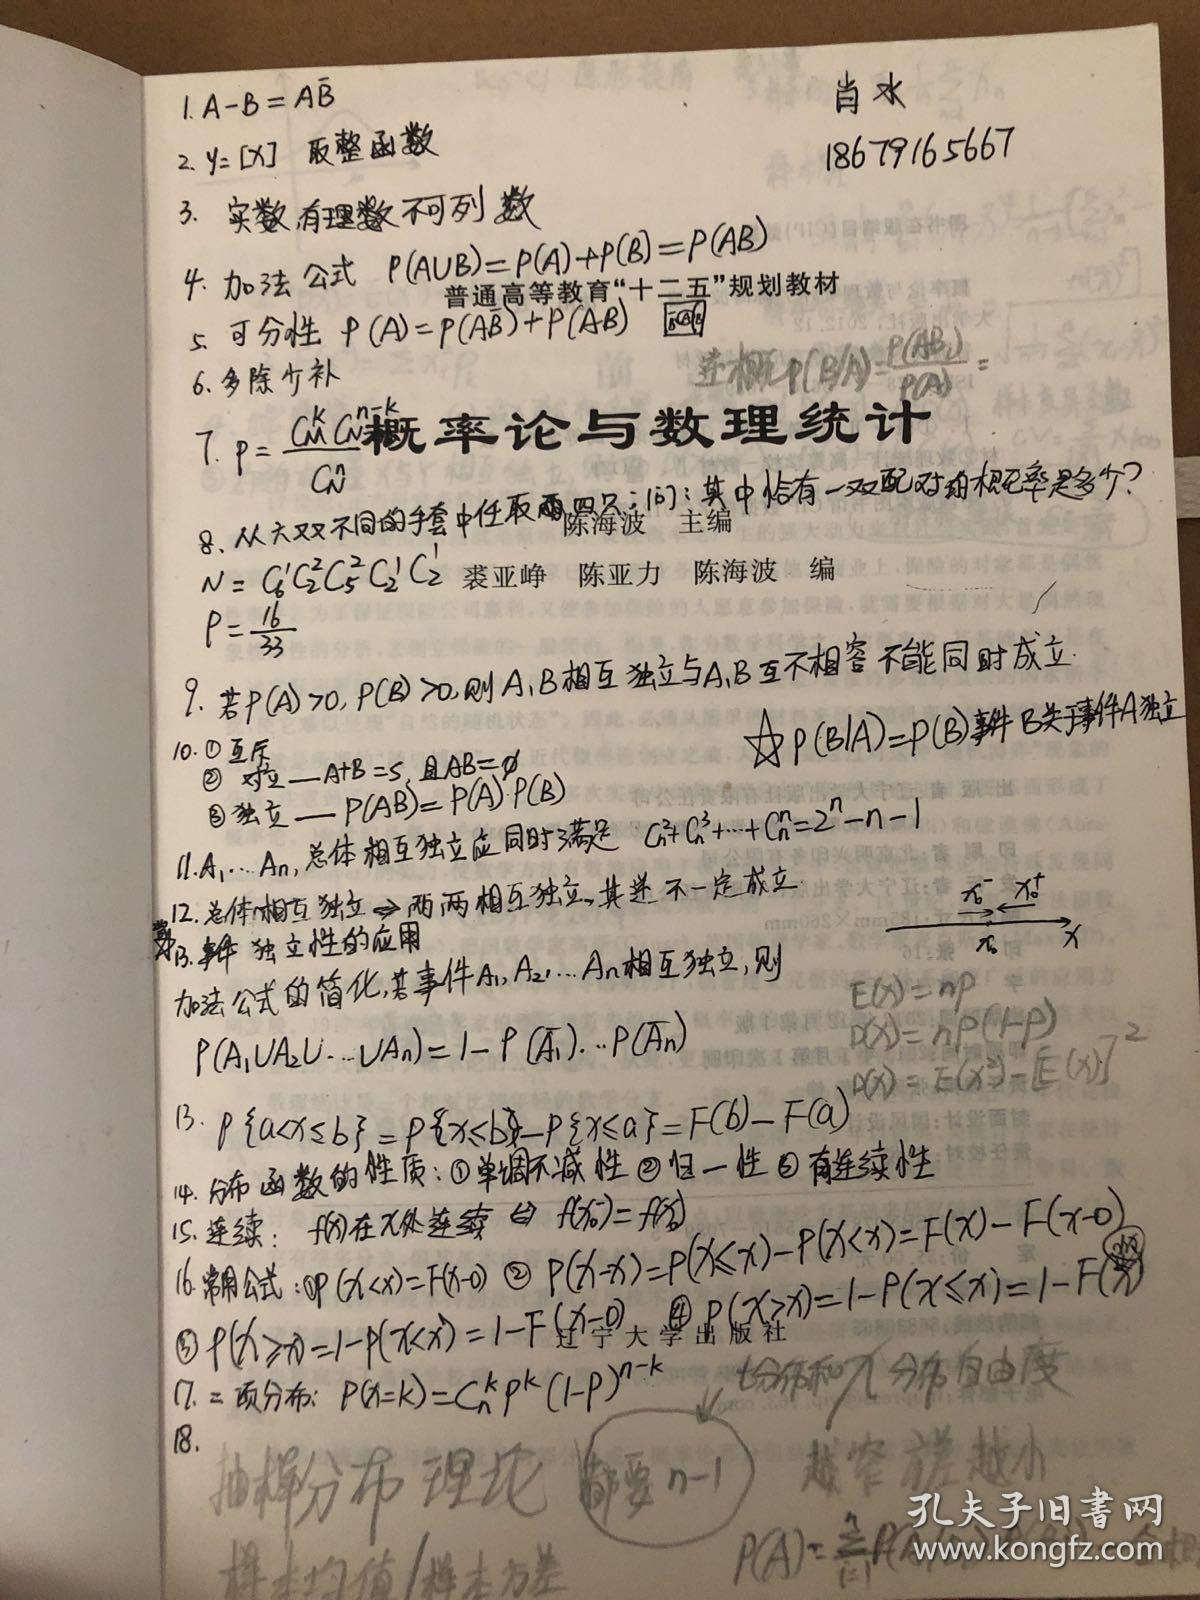 1. A-B=AB̄
肖水
2. y=[x] 取整函数
18679165667
3. 实数,有理数不可列数
4. 加法公式 P(A∪B)=P(A)+P(B)=P(AB)
普通高等教育“十二五”规划教材
5. 可分性 P(A)=P(AB̄)+P(AB)
6. 多除少补
P(B|A)=P(AB)/P(A)=
概率论与数理统计
7. P=
8. 从六双不同的手套中任取四只;问:其中恰有一双配对的概率是多少?
陈海波 主编
N=C₆¹C₂²C₅²C₂¹C₂¹
裘亚峥 陈亚力 陈海波 编
P=16/33
9. 若P(A)>0,P(B)>0,则A,B相互独立与A,B互不相容不能同时成立.
☆P(B|A)=P(B)事件B关于事件A独立
10. ①互斥
② 对立—A+B=S,且AB=∅
③独立—P(AB)=P(A)P(B)
11. A₁…Aₙ,总体相互独立应同时满足 Cₙ²+Cₙ³+…+Cₙⁿ=2ⁿ-n-1
12. 总体相互独立⇒两两相互独立,其逆不一定成立.
13. 事件独立性的应用
x₀⁻ x₀⁺
x₀ x
加法公式的简化,若事件A₁,A₂,…Aₙ相互独立,则
E(x)=np
P(A₁∪A₂∪…∪Aₙ)=1-P(Ā₁)…P(Āₙ)
D(x)=np(1-p)
D(x)=E(x²)-[E(x)]²
13. P{a<x≤b}=P{x≤b}-P{x≤a}=F(b)-F(a)
14. 分布函数的性质:①单调不减性②归一性③右连续性
15. 连续: f(x)在x处连续⇔f(x₀⁻)=f(x₀)
16. 常用公式:①P(x<x)=F(x-0) ②P(x=x)=P(x≤x)-P(x<x)=F(x)-F(x-0)
③P(x≥x)=1-P(x<x)=1-F(x-0) ④P(x>x)=1-P(x≤x)=1-F(x)
辽宁大学出版社
17. 二项分布: P(x=k)=Cₙᵏpᵏ(1-p)ⁿ⁻ᵏ
t分布和 分布自由度
18.
抽样分布理论 都要n-1 越窄方差越小
样本均值/样本方差
P(A)=
孔夫子旧书网
www.kongfz.com